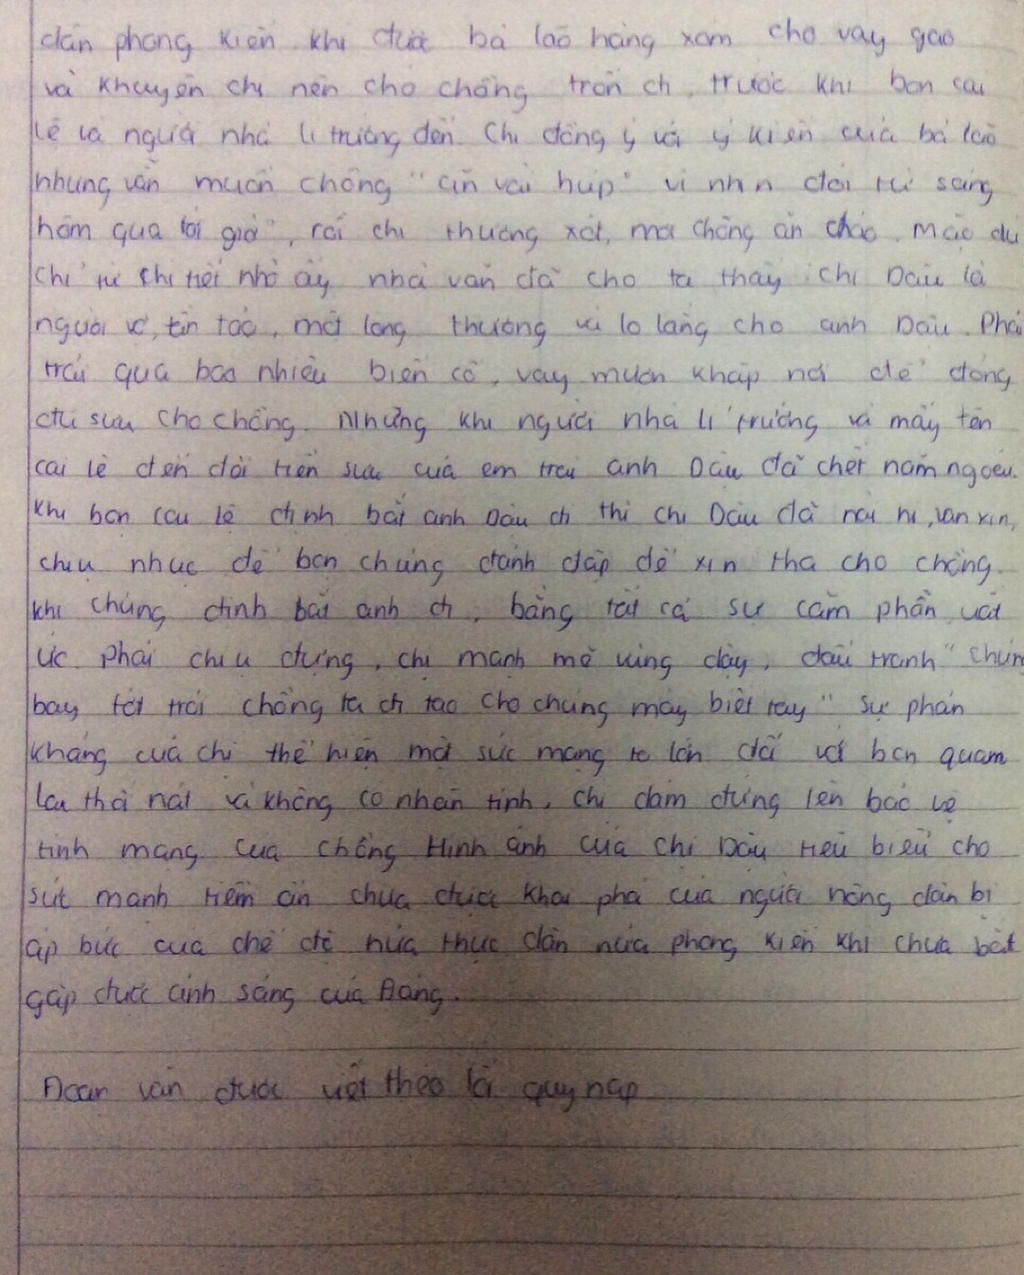 dân phong kiến khi được bà lão hàng xóm cho vay gạo
và khuyên chị nên cho chồng trốn đi, trước khi bọn cai
lệ và người nhà lí trưởng đến. Chị đồng ý với ý kiến của bà lão
nhưng vẫn muốn chồng "ăn vài húp" vì nhịn đói từ sáng
hôm qua tới giờ", rồi chị thương xót, mời chồng ăn cháo. Mặc dù
chỉ từ chi tiết nhỏ ấy nhà văn đã cho ta thấy chị Dậu là
người vợ, tần tảo, một lòng thương và lo lắng cho anh Dậu. Phải
trải qua bao nhiêu biến cố, vay mượn khắp nơi để đóng
đủ sưu cho chồng. Nhưng khi người nhà lí trưởng và mấy tên
cai lệ đến đòi tiền sưu của em trai anh Dậu đã chết năm ngoái.
Khi bọn cai lệ định bắt anh Dậu đi thì chị Dậu đã nài nỉ, van xin,
chịu nhục để bọn chúng đánh đập để xin tha cho chồng.
khi chúng định bắt anh đi, bằng tất cả sự căm phẫn, uất
ức phải chịu đựng, chị mạnh mẽ vùng dậy, đấu tranh "chúng
bay tốt trói chồng ta đi tao cho chúng mày biết tay" sự phản
kháng của chị thể hiện một sức mạng to lớn đối với bọn quam
lại thối nát và không có nhân tính, chị dám đứng lên bảo vệ
tính mạng của chồng Hình ảnh của chị Dậu tiêu biểu cho
sứt mạnh tiềm ẩn chưa được khai phá của người nông dân bị
áp bức của chế độ nửa thực dân nửa phong kiến khi chưa bắt
gặp được ánh sáng của Đảng.
Đoạn văn được viết theo lối quy nạp